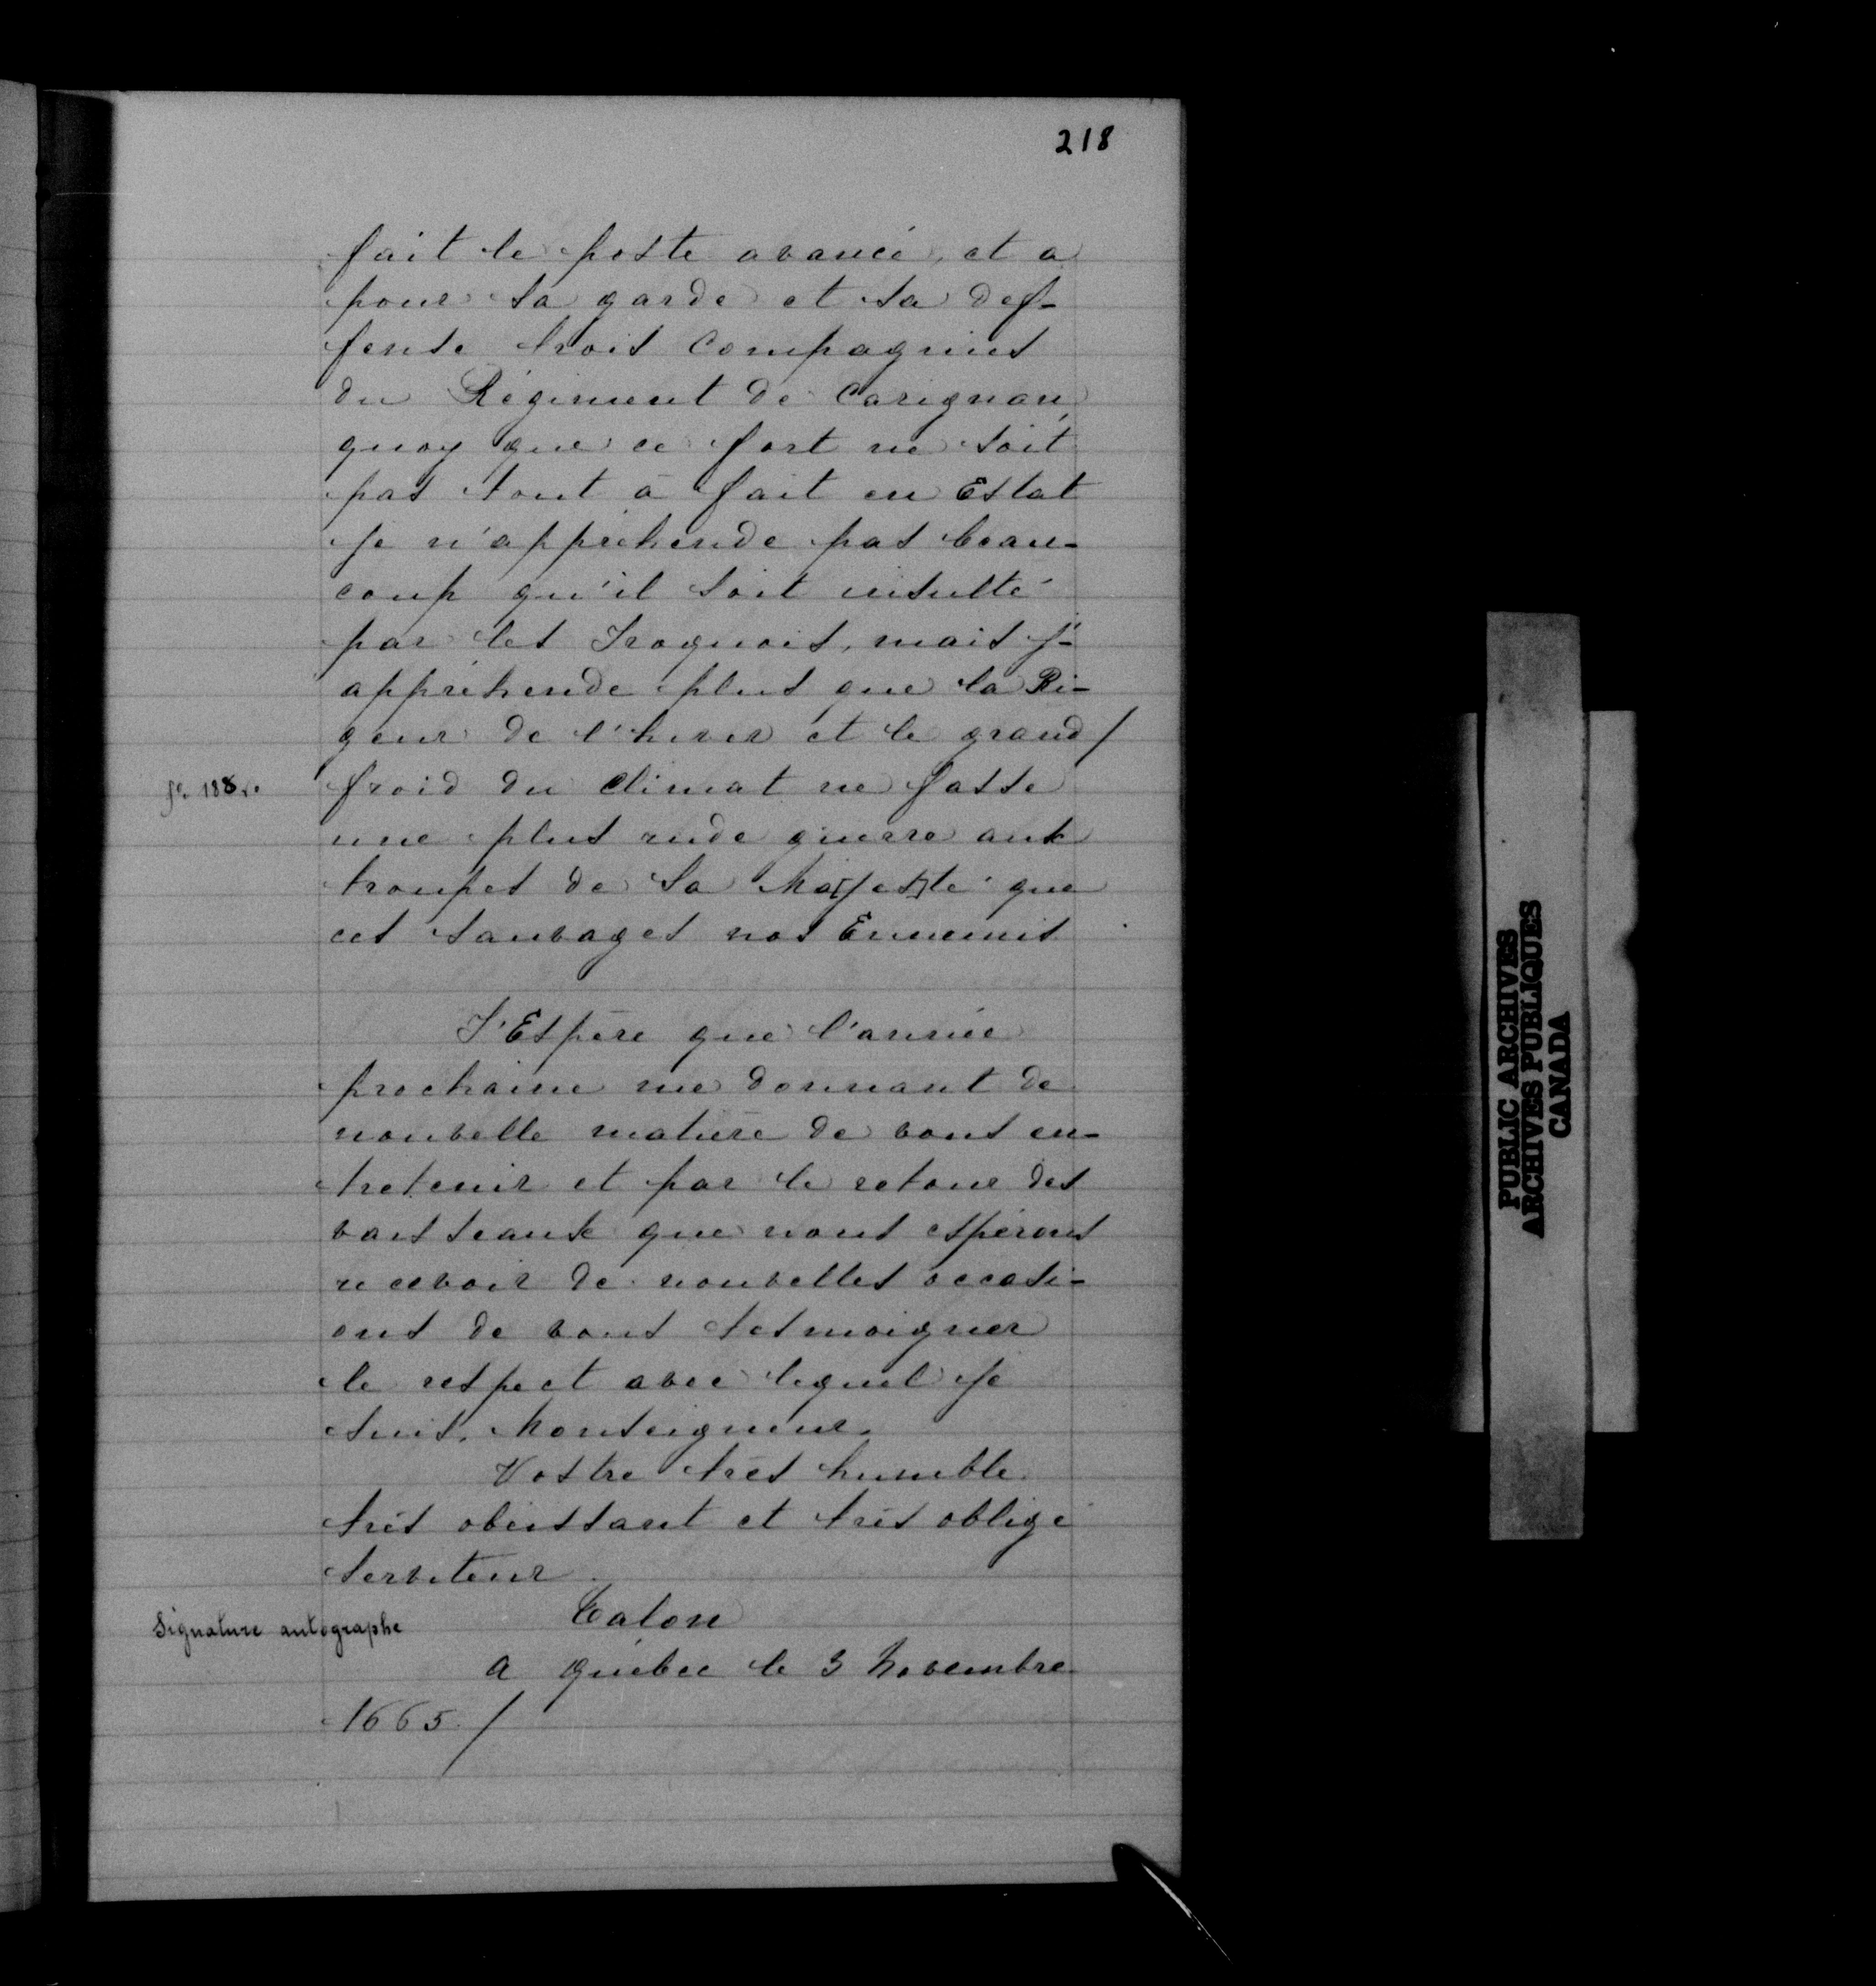 218
fait le poste avancé, et a
pour sa garde et sa def-
fense trois Compagnies
du Régiment de Carignan,
quoy que ce fort ne soit
pas tout à fait en Estat
je n'appréhende pas beau-
coup qu'il soit insulté
par les Iroquois, mais j'-
appréhende plus que la Ri-
geur de l'hiver et le grand/
fo. 188 vo
froid du Climat ne fasse
une plus rude guerre aux
troupes de Sa Ma[jes]té que
ces sauvages nos Ennemis
J'Espère que l'année
prochaine me donnant de
nouvelle matière de vous en-
tretenir et par le retour des
vaisseaux que nous espérons
recevoir de nouvelles occasi-
ons de vous tesmoigner
le respect avec lequel je
suis, Monseigneur,
Vostre très humble
très obéissant et très obligé
serviteur.
Talon
Signature autographe
A Québec le 3 Novembre
1665./
PUBLIC ARCHIVES
ARCHIVES PUBLIQUES
CANADA